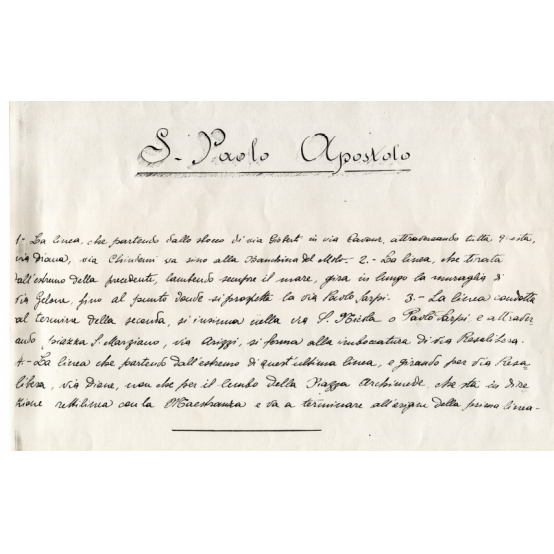 S. Paolo Apostolo
1.- La linea, che partendo dallo sbocco di via Gioberti in via Cavour, attraversando tutta questa,
via Diana, via Chindemi va sino alla Banchina del Mto.- 2.- La linea, che tirata
dall'estremo della precedente, lambendo sempre il mare, gira in lungo la muraglia di
via Gelone, fino al punto donde si prospetta la via Paolo Sarpi. 3.- La linea condotta
al termine della seconda, si insinua nella via S. Nicola o Paolo Sarpi, e attraver
ando piazza S. Marziano, via Arizzi, si ferma alla imboccatura di via Resalibera.
4.- La linea che partendo dall'estremo di quest'ultima linea, e girando per via Resa-
libera, via Diane, non che per il lembo della Piazza Archimede che sta in dire
zione rettilinea con la Maestranza e va a terminare all'origine della prima linea.-